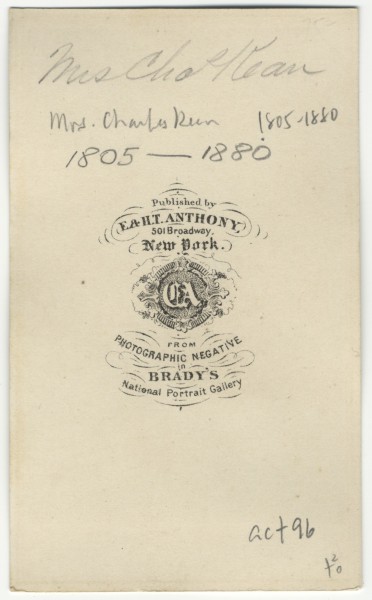 Mrs Chas Kean
Mrs. Charles Keen 1805-1880
1805 — 1880
Published by
E. & H.T. ANTHONY,
501 Broadway,
New York.
EA
FROM
PHOTOGRAPHIC NEGATIVE
in
BRADY'S
National Portrait Gallery
act 96